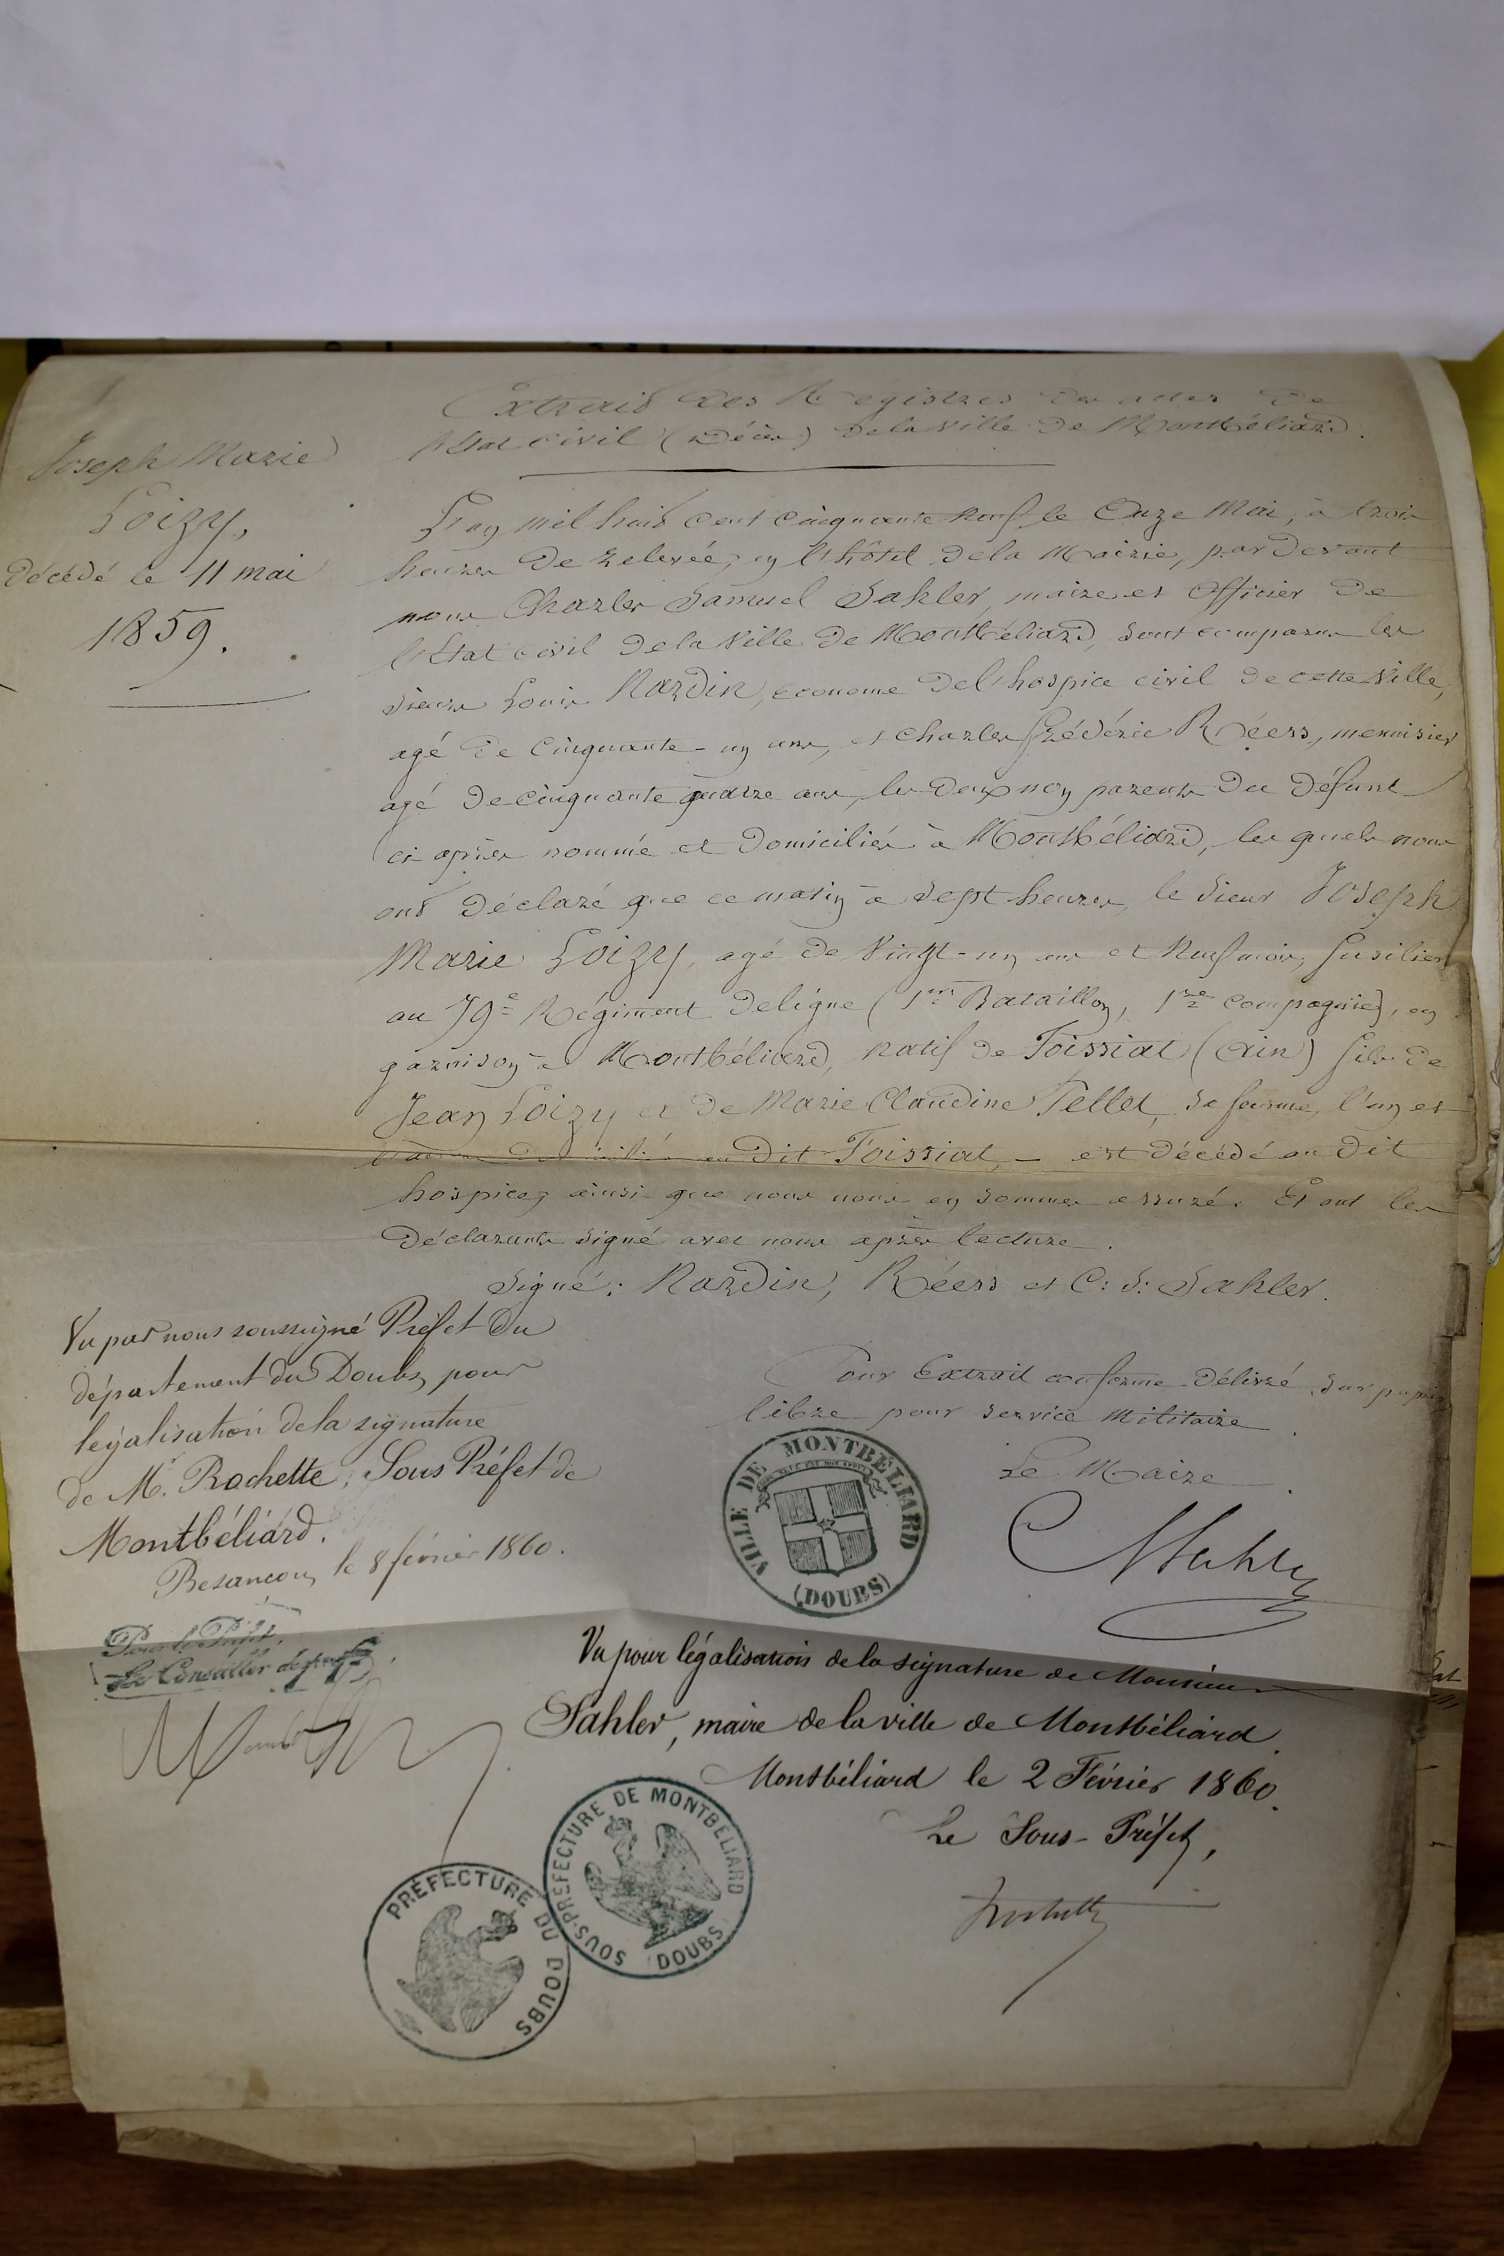 Extrait des Registres des actes de
l'Etat civil (Décès) de la Ville de Montbéliard.
Joseph Marie
Loizy,
décédé le 11 mai
1859.
L'an mil huit cent cinquante neuf le Onze Mai, à trois
heures de relevée, en l'hôtel de la Mairie, par devant
nous Charles Samuel Sahler, maire et Officier de
l'Etat civil de la Ville de Montbéliard, sont comparus les
sieurs Louis Nardin, économe de l'hospice civil de cette Ville,
agé de cinquante-un ans, et Charles Frédéric Réers, menuisier
agé de cinquante quatre ans, les deux non parents du défunt
ci après nommé et domiciliés à Montbéliard, les quels nous
ont déclaré que ce matin à sept heures, le sieur Joseph
Marie Loizy, agé de Vingt-un ans et Neuf mois, fusilier
au 79e Régiment de ligne (1er Bataillon, 1re compagnie), en
garnison à Montbéliard, natif de Foissiat (Ain) fils de
Jean Loizy et de Marie Claudine Pellet, sa femme, l'un et
l'autre domiciliés au dit Foissiat, - est décédé au dit
hospice, ainsi que nous nous en sommes assuré. Et ont les
déclarants signé avec nous après lecture.
Signé: Nardin, Réers et C: S: Sahler.
Pour Extrait conforme délivré sur papier
libre pour service militaire.
Le Maire
VILLE DE MONTBÉLIARD
(DOUBS)
CS Sahler
Vu par nous soussigné Préfet du
département du Doubs, pour
légalisation de la signature
de Mr. Rochette, Sous Préfet de
Montbéliard.
Besançon, le 8 février 1860.
Pour le Préfet,
Le Conseiller délégué
Vu pour légalisation de la signature de Monsieur
Sahler, maire de la ville de Montbéliard.
Montbéliard le 2 Février 1860.
Le Sous-Préfet,
Rochette
SOUS-PRÉFECTURE DE MONTBÉLIARD
(DOUBS)
PRÉFECTURE DU DOUBS